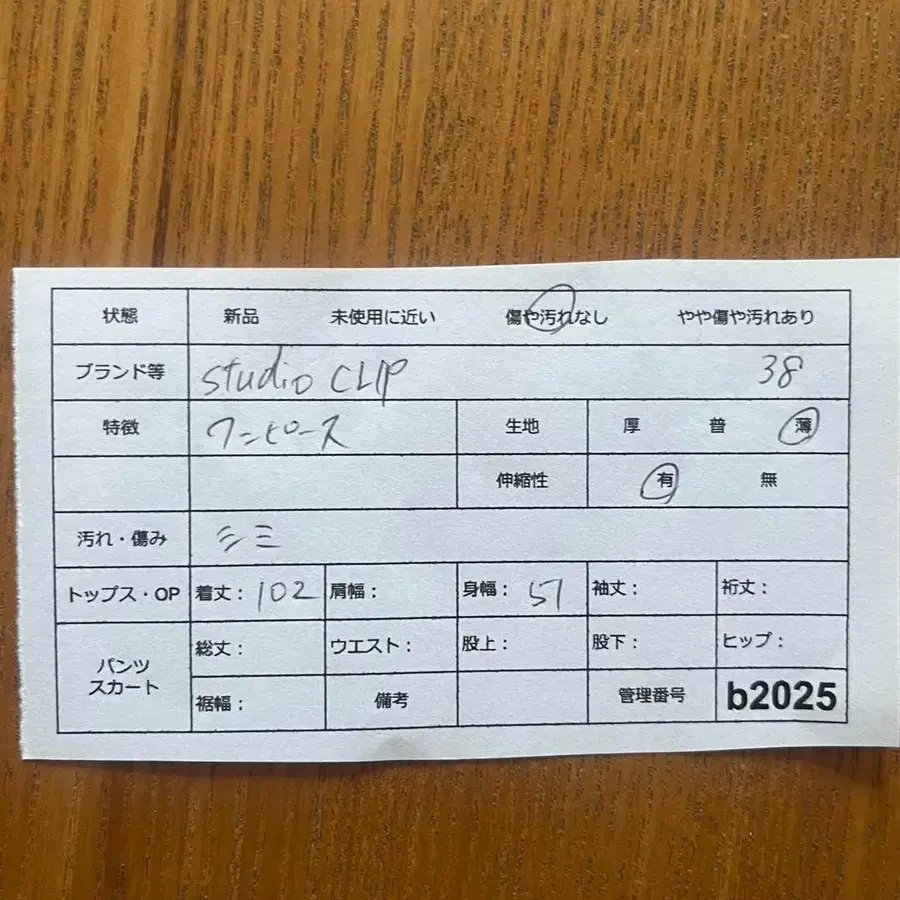 状態 新品 未使用に近い 傷や汚れなし やや傷や汚れあり
ブランド等 studio CLIP 38
特徴 ワンピース 生地 厚 普 薄
伸縮性 有 無
汚れ・傷み シミ
トップス・OP 着丈: 102 肩幅: 身幅: 57 袖丈: 裄丈:
パンツ スカート 総丈: ウエスト: 股上: 股下: ヒップ:
裾幅: 備考 管理番号 b2025